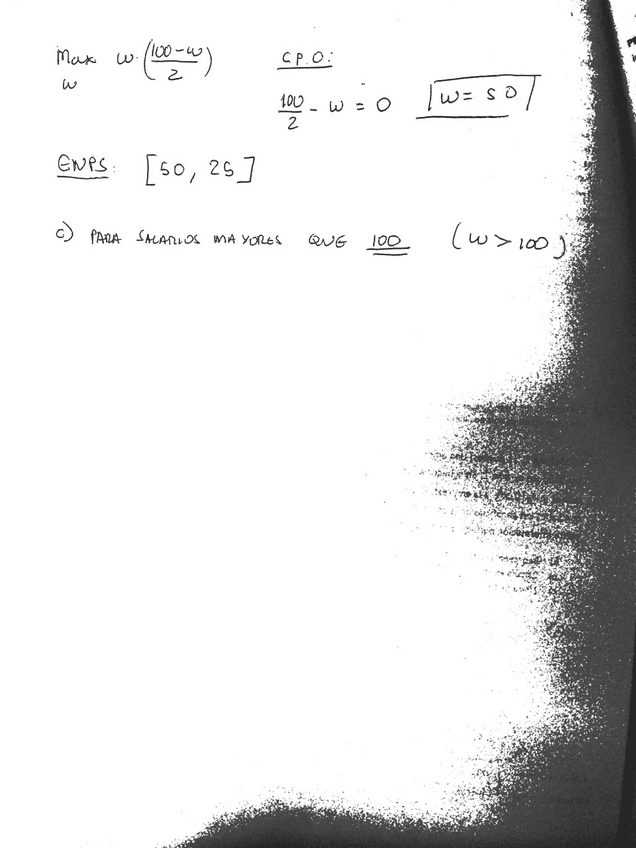 Max w·(100-w/2) C.P.O:
w
100/2 - w = 0 w = 50
ENPS: [50, 25]
c) PARA SALARIOS MAYORES QUE 100 (w > 100)